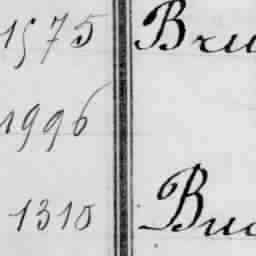 1575 Bru
1996
1310 Buc